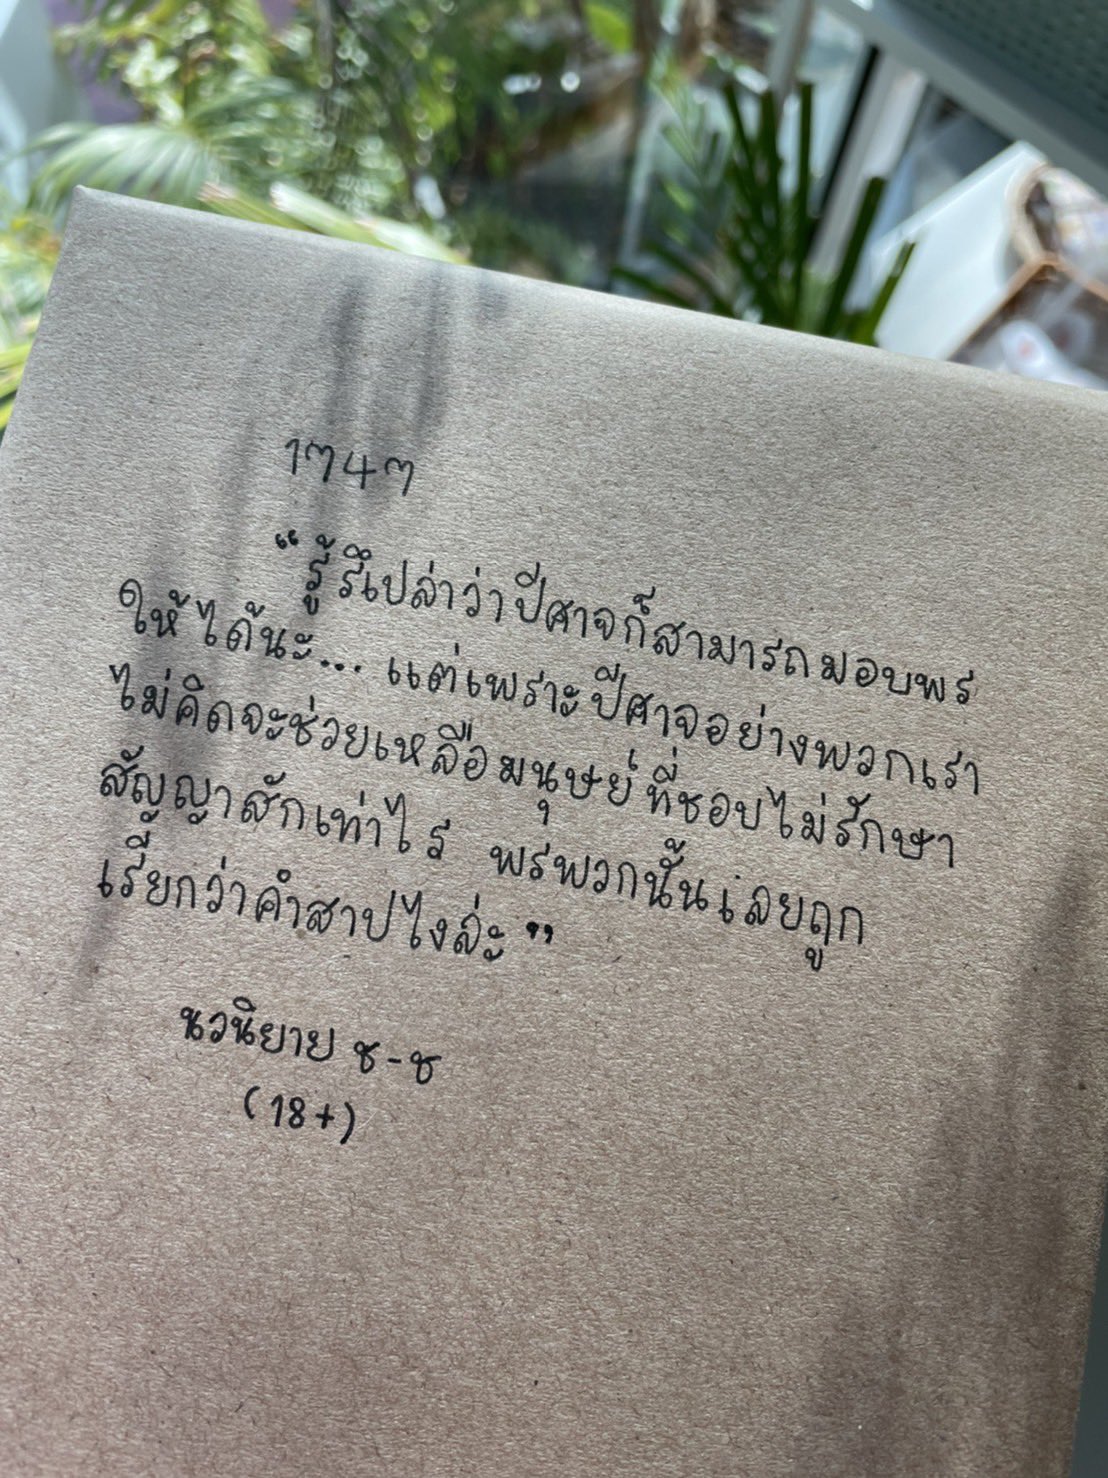 1747
“รู้รึเปล่าว่าปีศาจก็สามารถมอบพร
ให้ได้นะ... แต่เพราะปีศาจอย่างพวกเรา
ไม่คิดจะช่วยเหลือมนุษย์ที่ชอบไม่รักษา
สัญญาสักเท่าไร พรพวกนั้นเลยถูก
เรียกว่าคำสาปไงล่ะ”
นวนิยาย ช-ช
(18+)